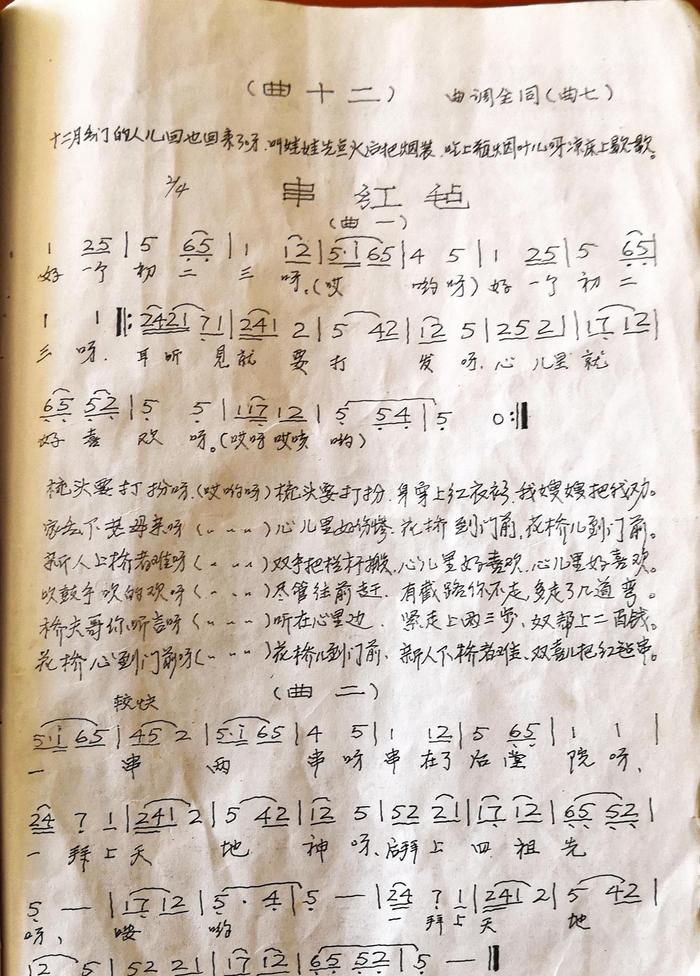 （曲十二） 曲调全同（曲七）
十二月出门的人儿回也回来了呀，叫娃娃先点火后把烟装，吃上瓶烟叶儿呀凉床上歇一歇。
2/4 串红毡
（曲一）
1 25 | 5 65 | 1 12 | 5·1 65 | 4 5 | 1 25 | 5 65 |
好 一个 初 二 三 呀，（哎 哟呀）好 一个 初 二
1 1 ‖: 2421 71 | 241 2 | 5 42 | 12 5 | 252 | 17 12 |
三 呀． 耳听 見就 要 打 发 呀，心 儿里 就
65 52 | 5 5 | 117 12 | 5 54 | 5 0 :‖
好 喜 欢 呀。（哎呀哎咳 哟）
梳头要打扮呀，（哎哟呀）梳头要打扮．身穿上红衣衫，我嫂嫂把我劝。
下老母亲呀（〃〃〃）心儿里好伤惨．花桥到门前，花桥儿到门前。
新人上桥者难呀（〃〃〃）双手把栏杆搬．心儿里好喜欢．心儿里好喜欢。
吹鼓手吹的欢呀（〃〃〃）尽管往前赶．有截路你不走，多走了几道弯。
桥夫哥你听言呀（〃〃〃）听在心里边．紧走上两三步，奴帮上二百钱。
花桥心到门前呀（〃〃〃）花桥儿到门前．新人下桥者难．双喜儿把红毡串。
较快 （曲二）
5·1 65 | 45 2 | 5·1 65 | 4 5 | 1 12 | 5 65 | 1 1 |
一 串 两 串 呀 串 在了 后 堂 院 呀，
24 7 1 | 241 2 | 5 42 | 12 5 | 52 21 | 17 12 | 65 52 |
一 拜 上 天 地 神 呀，后拜 上 四 祖 先
5 — | 117 12 | 5 · 4 | 5 — | 24 7 1 | 241 2 | 5 42 |
呀， 嗳 哟 一 拜 上 天 地
12 5 | 52 21 | 17 12 | 65 52 | 5 — ‖